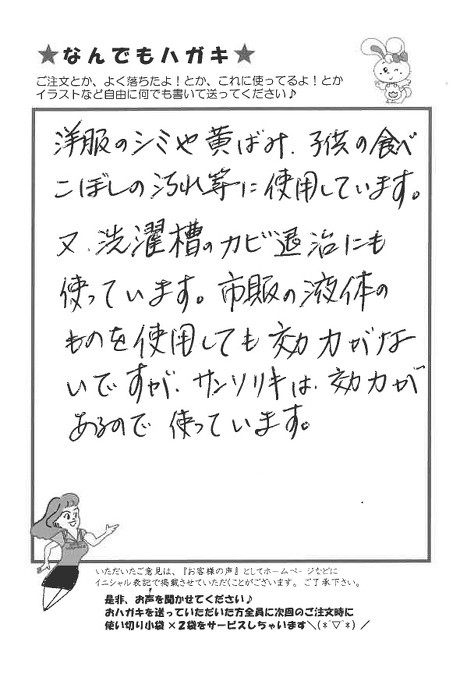 ★なんでもハガキ★
ご注文とか、よく落ちたよ！とか、これに使ってるよ！とか
イラストなど自由に何でも書いて送ってください♪
洋服のシミや黄ばみ、子供の食べ
こぼしの汚れ等に使用しています。
又、洗濯槽のカビ退治にも
使っています。市販の液体の
ものを使用しても効力がな
いですが、サンソリキは、効力が
あるので使っています。
いただいたご意見は、『お客様の声』としてホームページなどに
イニシャル表記で掲載させていただくことがございます。ご了承下さい。
是非、お声を聞かせてください♪
おハガキを送っていただいた方全員に次回のご注文時に
使い切り小袋×２袋をサービスしちゃいます＼(*´▽`*)／